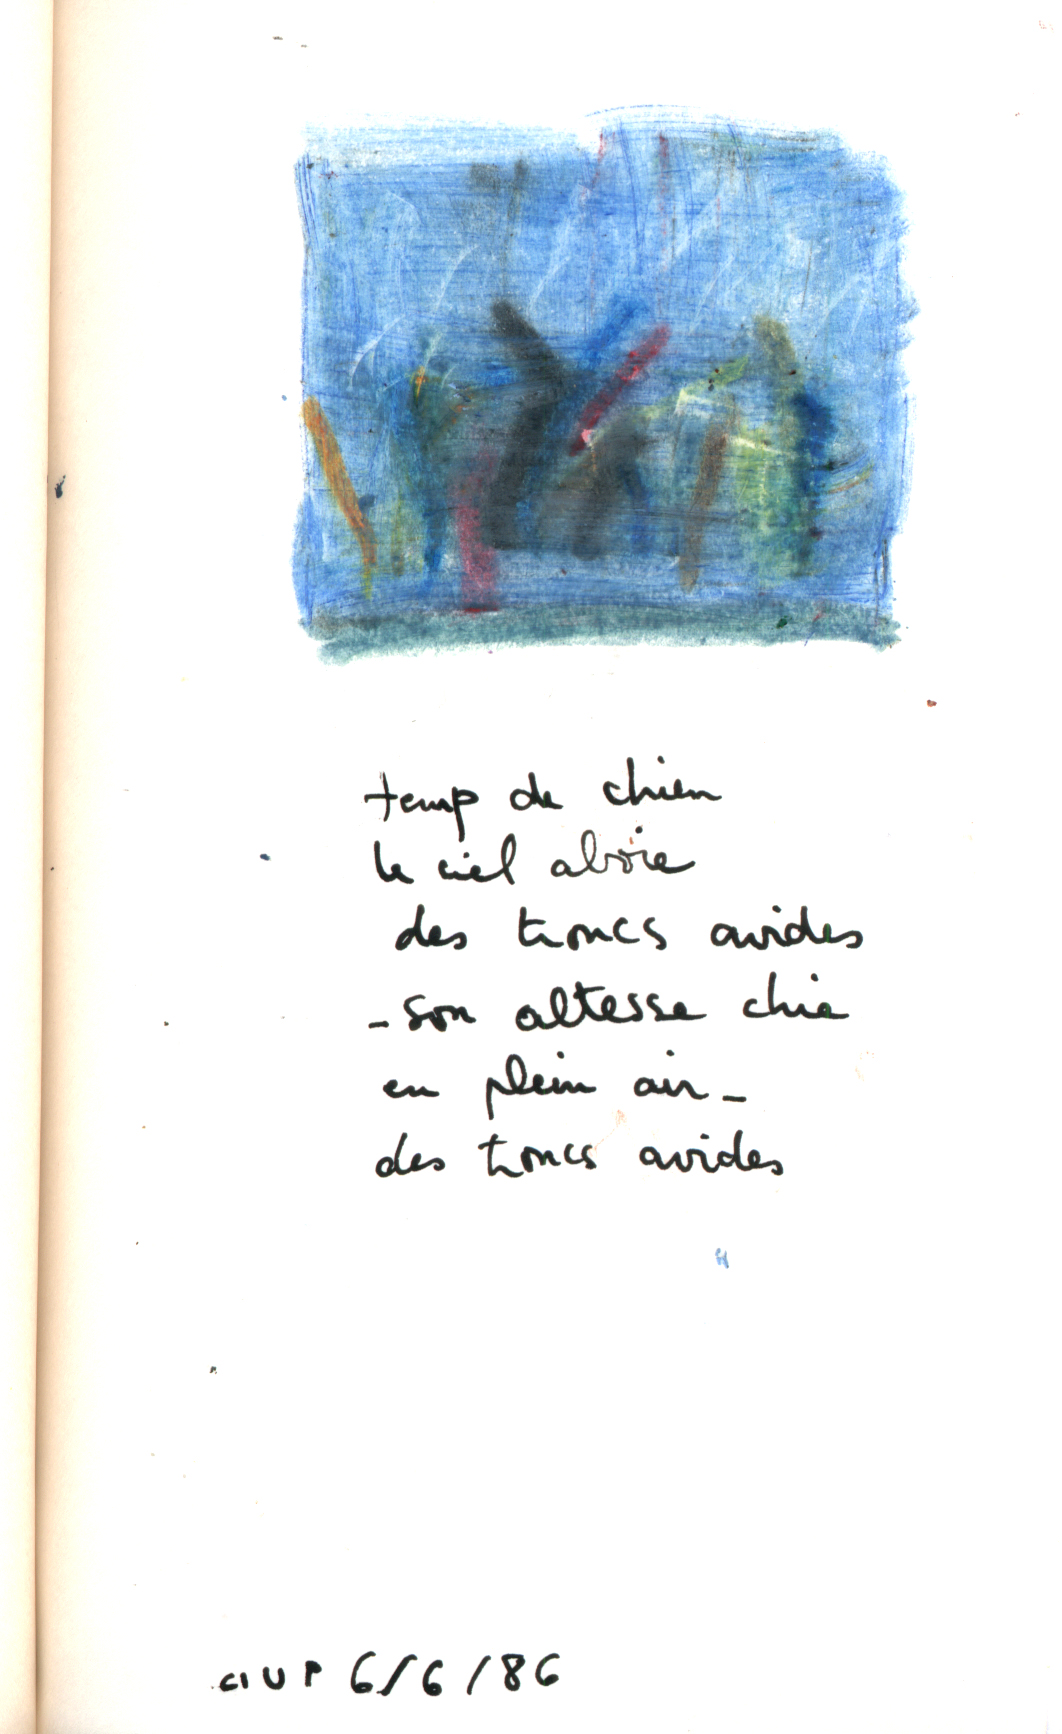 temp de chien
le ciel aboie
des troncs avides
- son altesse chie
en plein air -
des troncs avides
CIUP 6/6/86